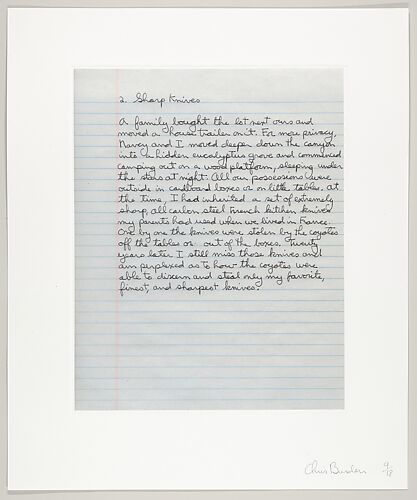 2. Sharp Knives
A family bought the lot next ours and
moved a house trailer on it. For more privacy,
Nancy and I moved deeper down the canyon
into a hidden eucalyptus grove and commenced
camping out on a wood platform, sleeping under
the stars at night. All our possessions were
outside in cardboard boxes or on little tables. At
the time, I had inherited a set of extremely
sharp, all carbon steel French kitchen knives
my parents had used when we lived in France.
One by one the knives were stolen by the coyotes
off the tables or out of the boxes. Twenty
years later I still miss those knives and
am perplexed as to how the coyotes were
able to discern and steal only my favorite,
finest, and sharpest knives.
Chris Burden 9/18